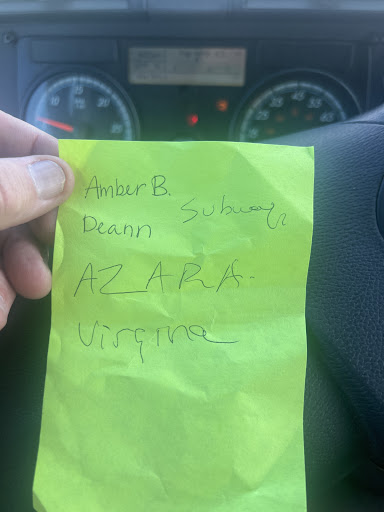 Amber B.
Subway
Deann
AZARA.
Virgina
10
15
20
5
25
45
55
65
5